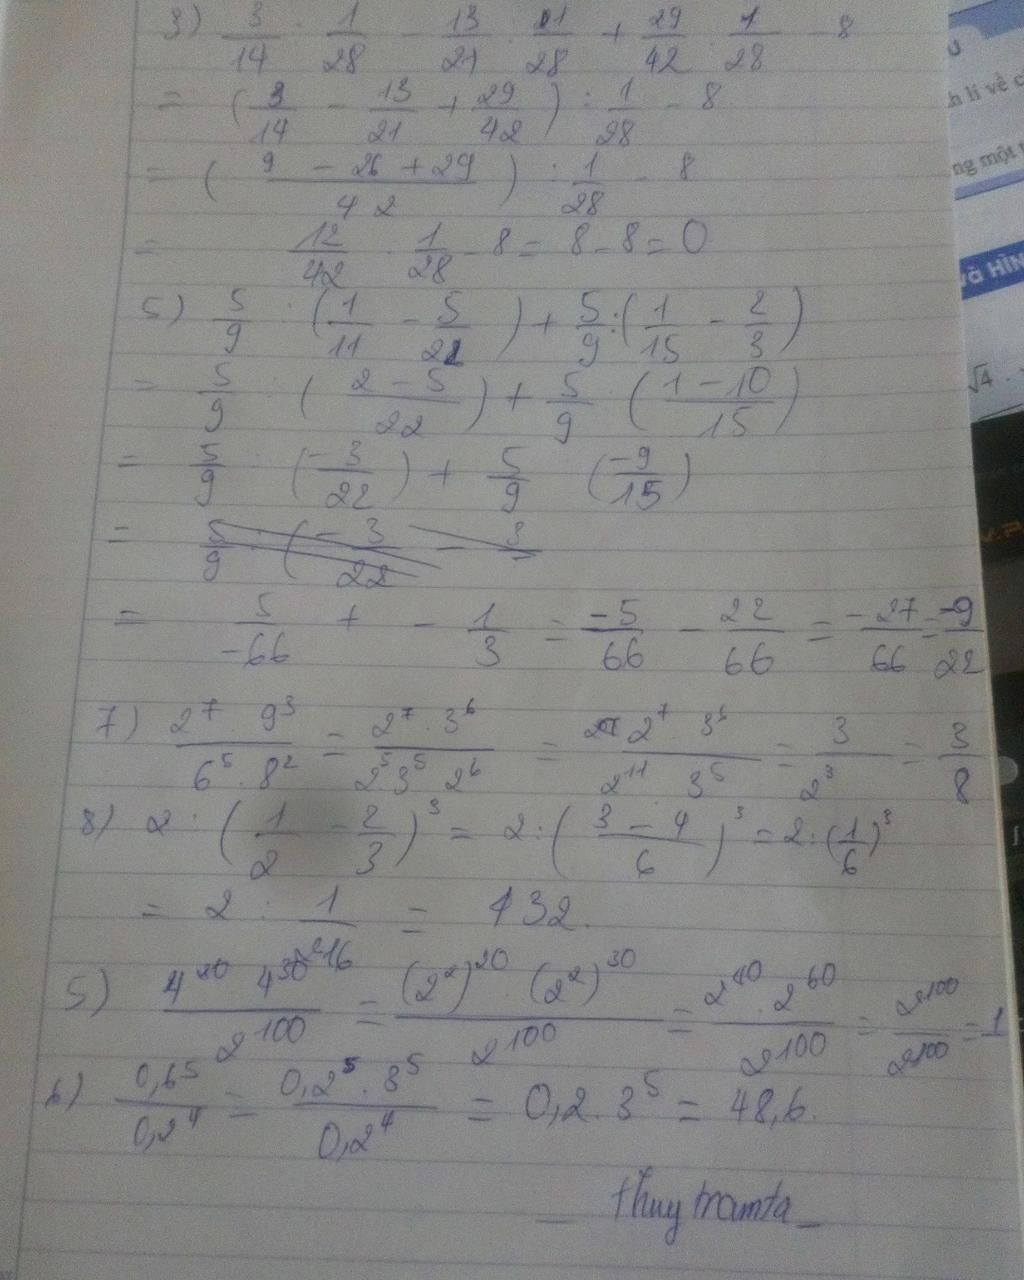 3) 3/14 : 1/28 - 13/21 : 1/28 + 29/42 : 1/28 - 8
= (3/14 - 13/21 + 29/42) : 1/28 - 8
= (9 - 26 + 29 / 42) : 1/28 - 8
= 12/42 : 1/28 - 8 = 8 - 8 = 0
5) 5/9 : (1/11 - 5/22) + 5/9 : (1/15 - 2/3)
= 5/9 : (2 - 5 / 22) + 5/9 : (1 - 10 / 15)
= 5/9 : (-3/22) + 5/9 . (-9/15)
= 5/9 : (-3/22 - 3
= 5/-66 + - 1/3 = -5/66 - 22/66 = -27/66 = -9/22
7) 2⁷ . 9³ / 6⁵ . 8² = 2⁷ . 3⁶ / 2⁵ 3⁵ . 2⁶ = 2⁷ . 3⁶ / 2¹¹ 3⁵ = 3/2³ = 3/8
8) 2 : (1/2 - 2/3)³ = 2 : (3 - 4 / 6)³ = 2 : (1/6)³
= 2 : 1/ = 432.
5) 4²⁰ 4³⁰ / 2¹⁰⁰ = (2²)²⁰ . (2²)³⁰ / 2¹⁰⁰ = 2⁴⁰ . 2⁶⁰ / 2¹⁰⁰ = 2¹⁰⁰ / 2¹⁰⁰ = 1
6) 0,6⁵ / 0,2⁴ = 0,2⁵ . 3⁵ / 0,2⁴ = 0,2 . 3⁵ = 48,6.
_ thuytramta _
lí về
ng một
và HÌN
√4